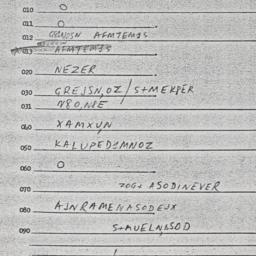 010 O
011 O
012 AFMTEMIS
013 AFMTEMIS
020 NEZER
030 GREJSN,OZ/S+MEKPER
031 N80,N8E
040 XAMXUN
050 KALUPEDIMNOZ
060 O
070 ZOG+ ASODINEVER
080 AINRAMENASODEJX
090 S+AUELN,ASOD